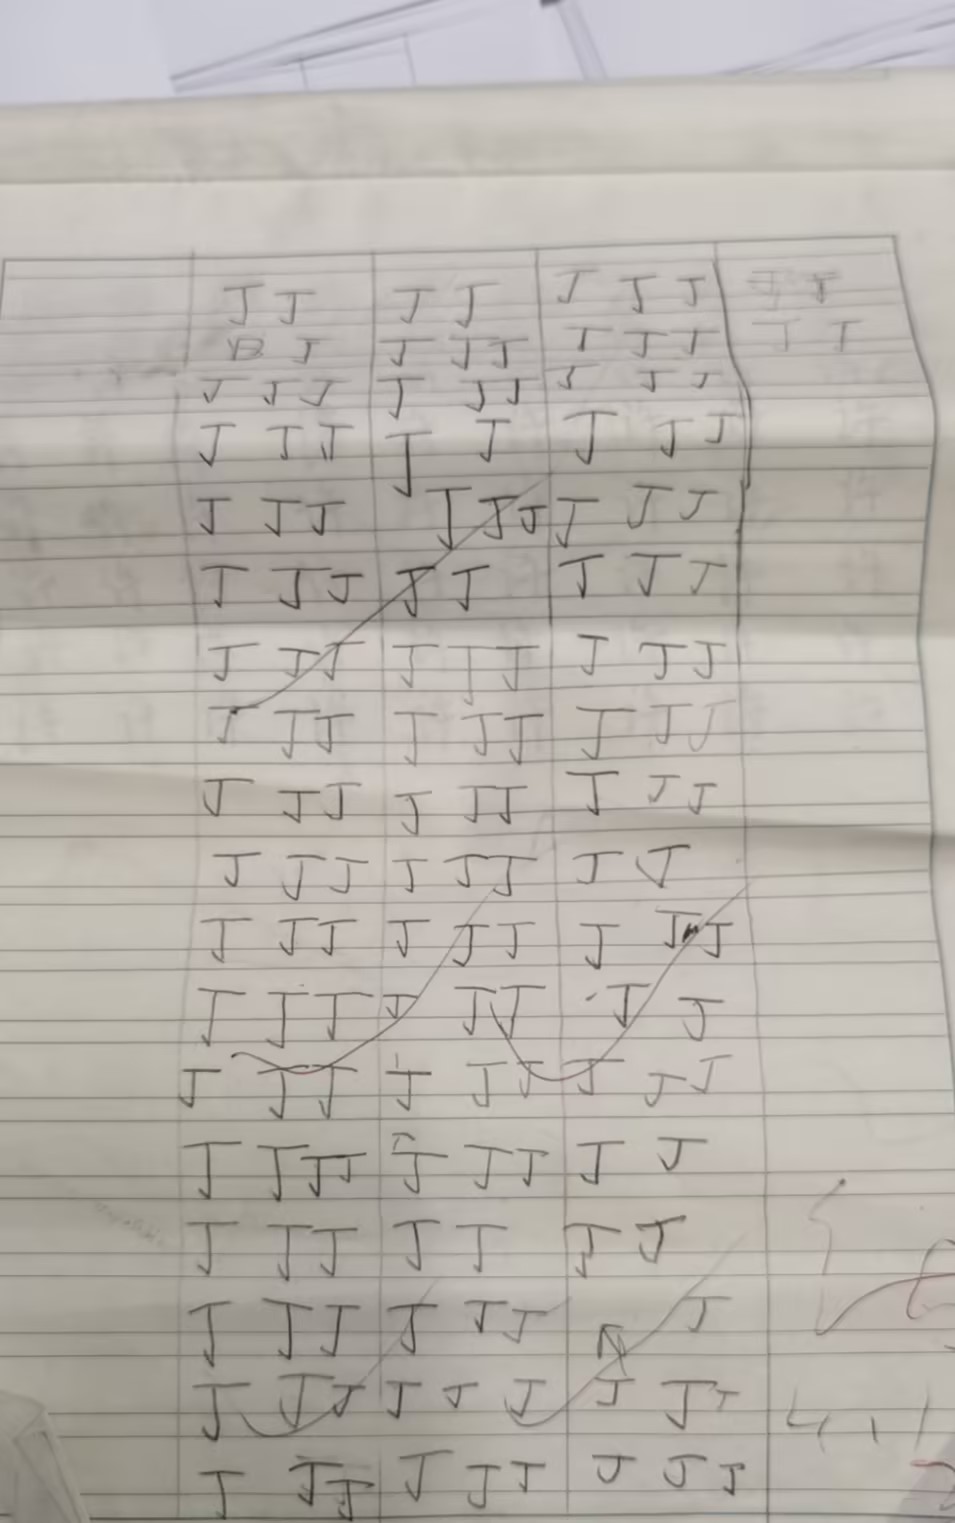 J J J J J J J
B J J J J J J J
J J J J J J J J J
J J J J J J J J
J J J J J J J J J
J J J J J J J J
J J J J J J J J J
J J J J J J J J J
J J J J J J J J J
J J J J J J J J
J J J J J J J J J
J J J J J J J J
J J J J J J J J J
J J J J J J J J J
J J J J J J J
J J J J J J J
J J J J J J J J
J J J J J J J J J